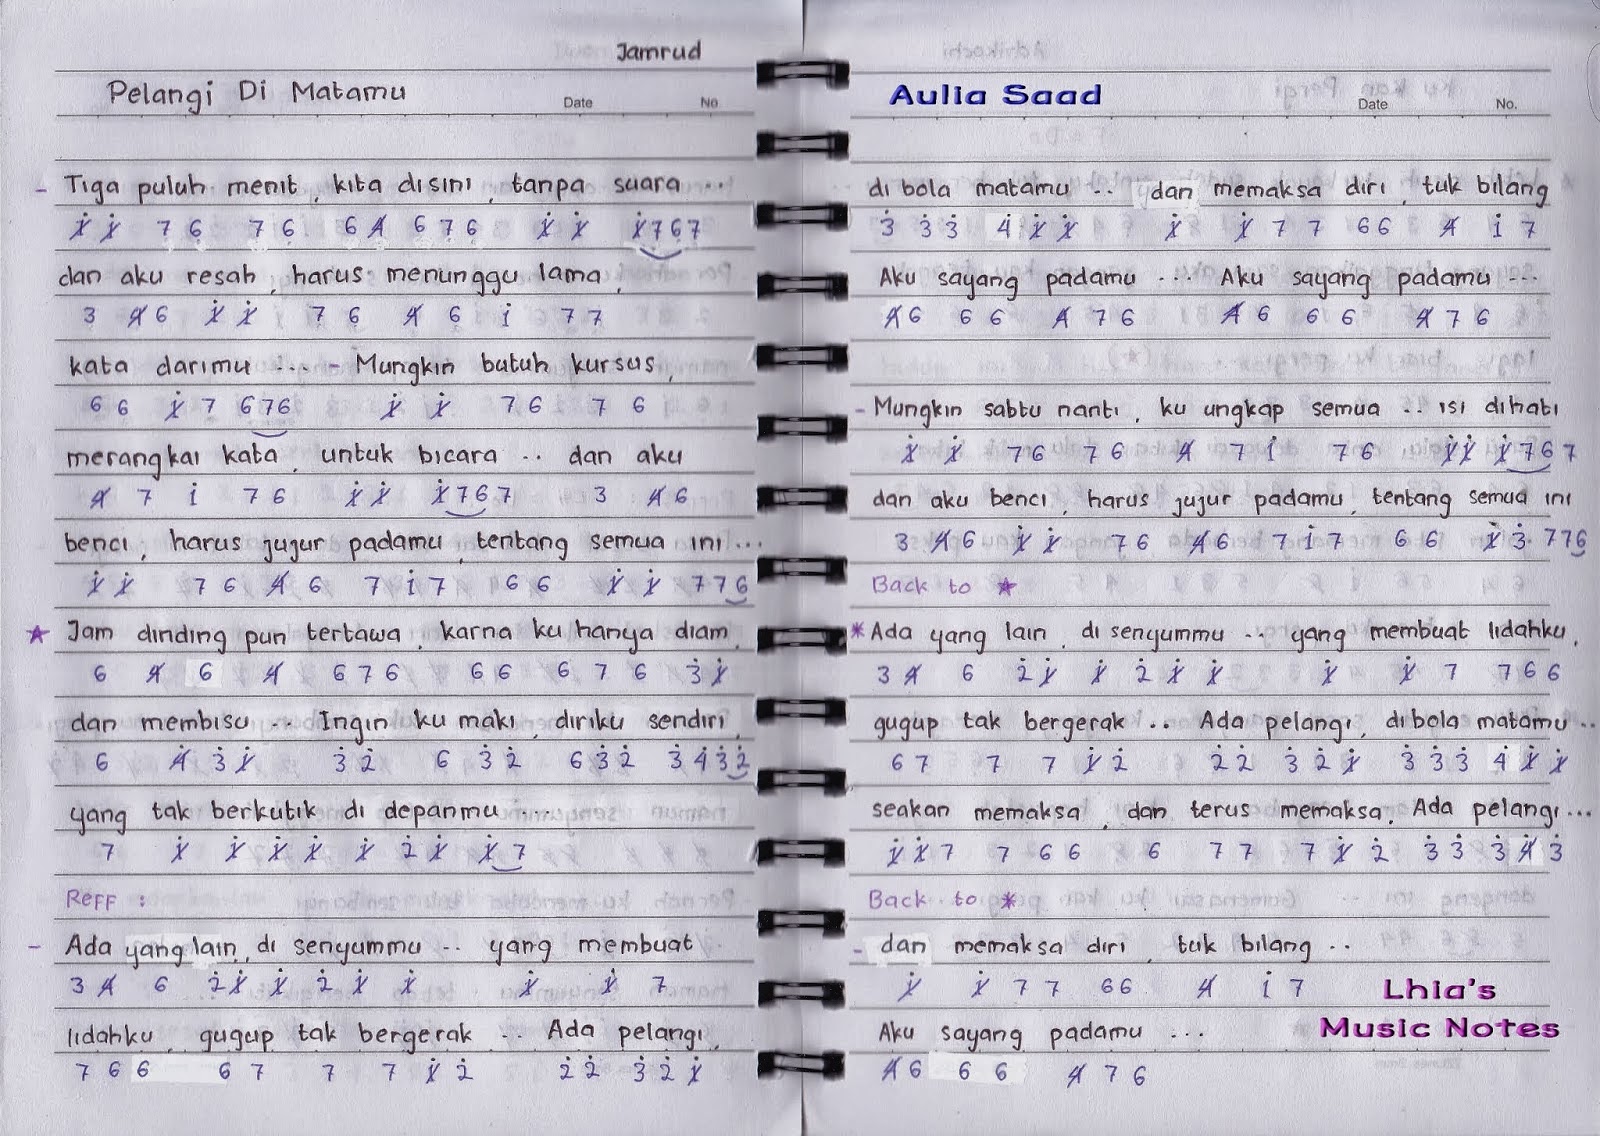 Jamrud
Pelangi Di Matamu
Date No
- Tiga puluh menit, kita disini, tanpa suara ...
1̸̇ 1̸̇ 7 6 7 6 6 4̸ 6 7 6 1̸̇ 1̸̇ 1̸̇ 7 6 7
dan aku resah, harus menunggu lama,
3 4̸ 6 1̸̇ 1̸̇ 7 6 4̸ 6 1̇ 7 7
kata darimu ... - Mungkin butuh kursus,
6 6 1̸̇ 7 6 7 6 1̸̇ 1̸̇ 7 6 7 6
merangkai kata, untuk bicara .. dan aku
4̸ 7 1̇ 7 6 1̸̇ 1̸̇ 1̸̇ 7 6 7 3 4̸ 6
benci, harus jujur padamu, tentang semua ini ...
1̸̇ 1̸̇ 7 6 4̸ 6 7 1̇ 7 6 6 1̸̇ 1̸̇ 7 7 6
★ Jam dinding pun tertawa, karna ku hanya diam,
6 4̸ 6 4̸ 6 7 6 6 6 6 7 6 3̇ 1̸̇
dan membisu .. Ingin ku maki, diriku sendiri,
6 4̸̇ 3̇ 1̸̇ 3̇ 2̇ 6 3̇ 2̇ 6 3̇ 2̇ 3̇ 4̇ 3̇ 2̇
yang tak berkutik di depanmu ...
7 1̸̇ 1̸̇ 1̸̇ 1̸̇ 1̸̇ 2̇ 1̸̇ 1̸̇ 7
Reff :
- Ada yang lain, di senyummu .. yang membuat
3 4̸ 6 2̇ 1̸̇ 1̸̇ 2̇ 1̸̇ 1̸̇ 1̸̇ 1̸̇ 7
lidahku, gugup tak bergerak .. Ada pelangi,
7 6 6 6 7 7 7 1̸̇ 2̇ 2̇ 2̇ 3̇ 2̇ 1̸̇
Aulia Saad
Date No.
di bola matamu .. dan memaksa diri, tuk bilang
3̇ 3̇ 3̇ 4̇ 1̸̇ 1̸̇ 1̸̇ 1̸̇ 7 7 6 6 4̸ 1̇ 7
Aku sayang padamu ... Aku sayang padamu ...
4̸ 6 6 6 4̸ 7 6 4̸ 6 6 6 4̸ 7 6
- Mungkin sabtu nanti, ku ungkap semua .. isi dihati
1̸̇ 1̸̇ 7 6 7 6 4̸ 7 1̇ 7 6 1̸̇ 1̸̇ 1̸̇ 7 6 7
dan aku benci, harus jujur padamu, tentang semua ini
3 4̸ 6 1̸̇ 1̸̇ 7 6 4̸ 6 7 1̇ 7 6 6 1̸̇ 3̇ 7 7 6
Back to ★
* Ada yang lain, di senyummu .. yang membuat lidahku,
3 4̸ 6 2̇ 1̸̇ 1̸̇ 2̇ 1̸̇ 1̸̇ 1̸̇ 1̸̇ 7 7 6 6
gugup tak bergerak .. Ada pelangi, dibola matamu ..
6 7 7 7 1̸̇ 2̇ 2̇ 2̇ 3̇ 2̇ 1̸̇ 3̇ 3̇ 3̇ 4̇ 1̸̇ 1̸̇
seakan memaksa, dan terus memaksa, Ada pelangi ...
1̸̇ 1̸̇ 7 7 6 6 6 7 7 7 1̸̇ 2̇ 3̇ 3̇ 3̇ 4̸̇ 3̇
Back to *
- dan memaksa diri, tuk bilang ..
1̸̇ 1̸̇ 7 7 6 6 4̸ 1̇ 7
Aku sayang padamu ...
4̸ 6 6 6 4̸ 7 6
Lhia's
Music Notes